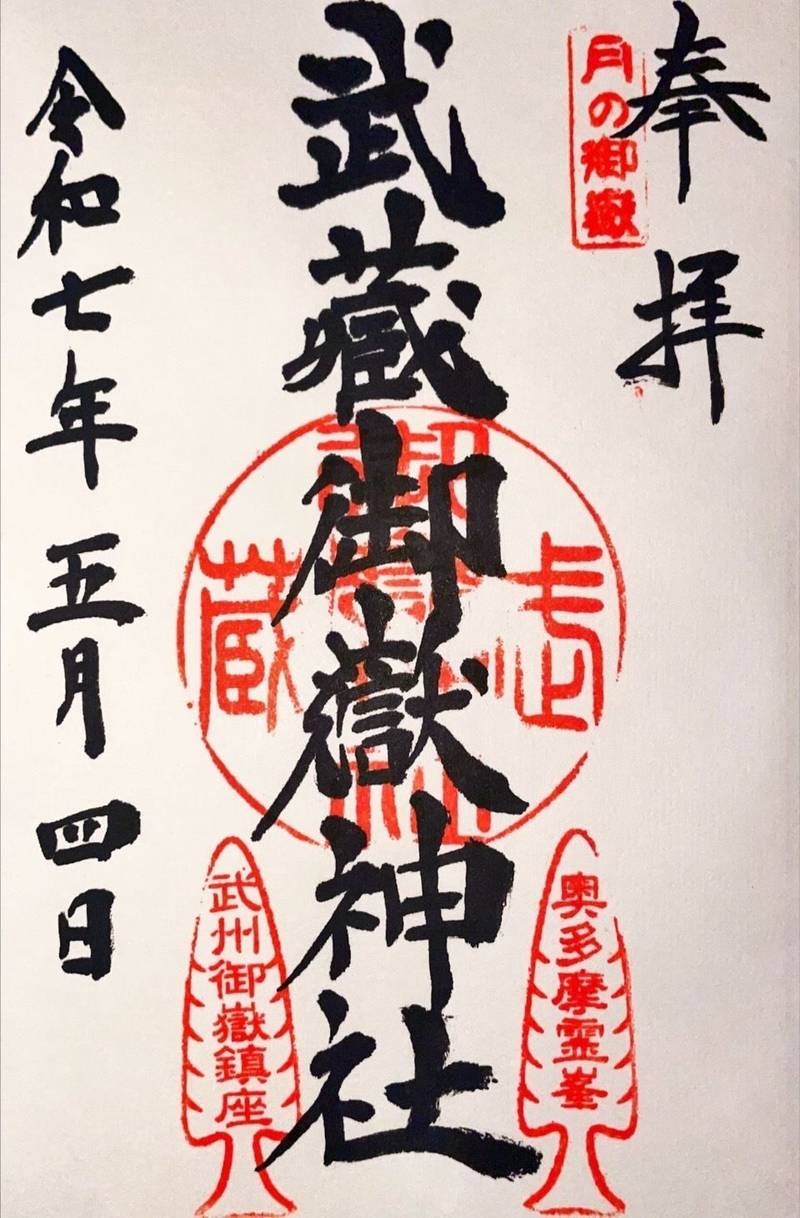 奉拝
月の御嶽
武蔵御嶽神社
奥多摩霊峯
武州御嶽鎮座
令和七年五月四日